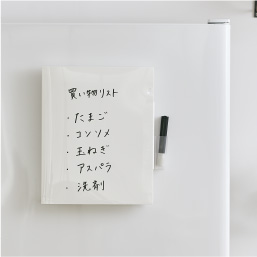 買い物リスト
・たまご
・コンソメ
・玉ねぎ
・アスパラ
・洗剤